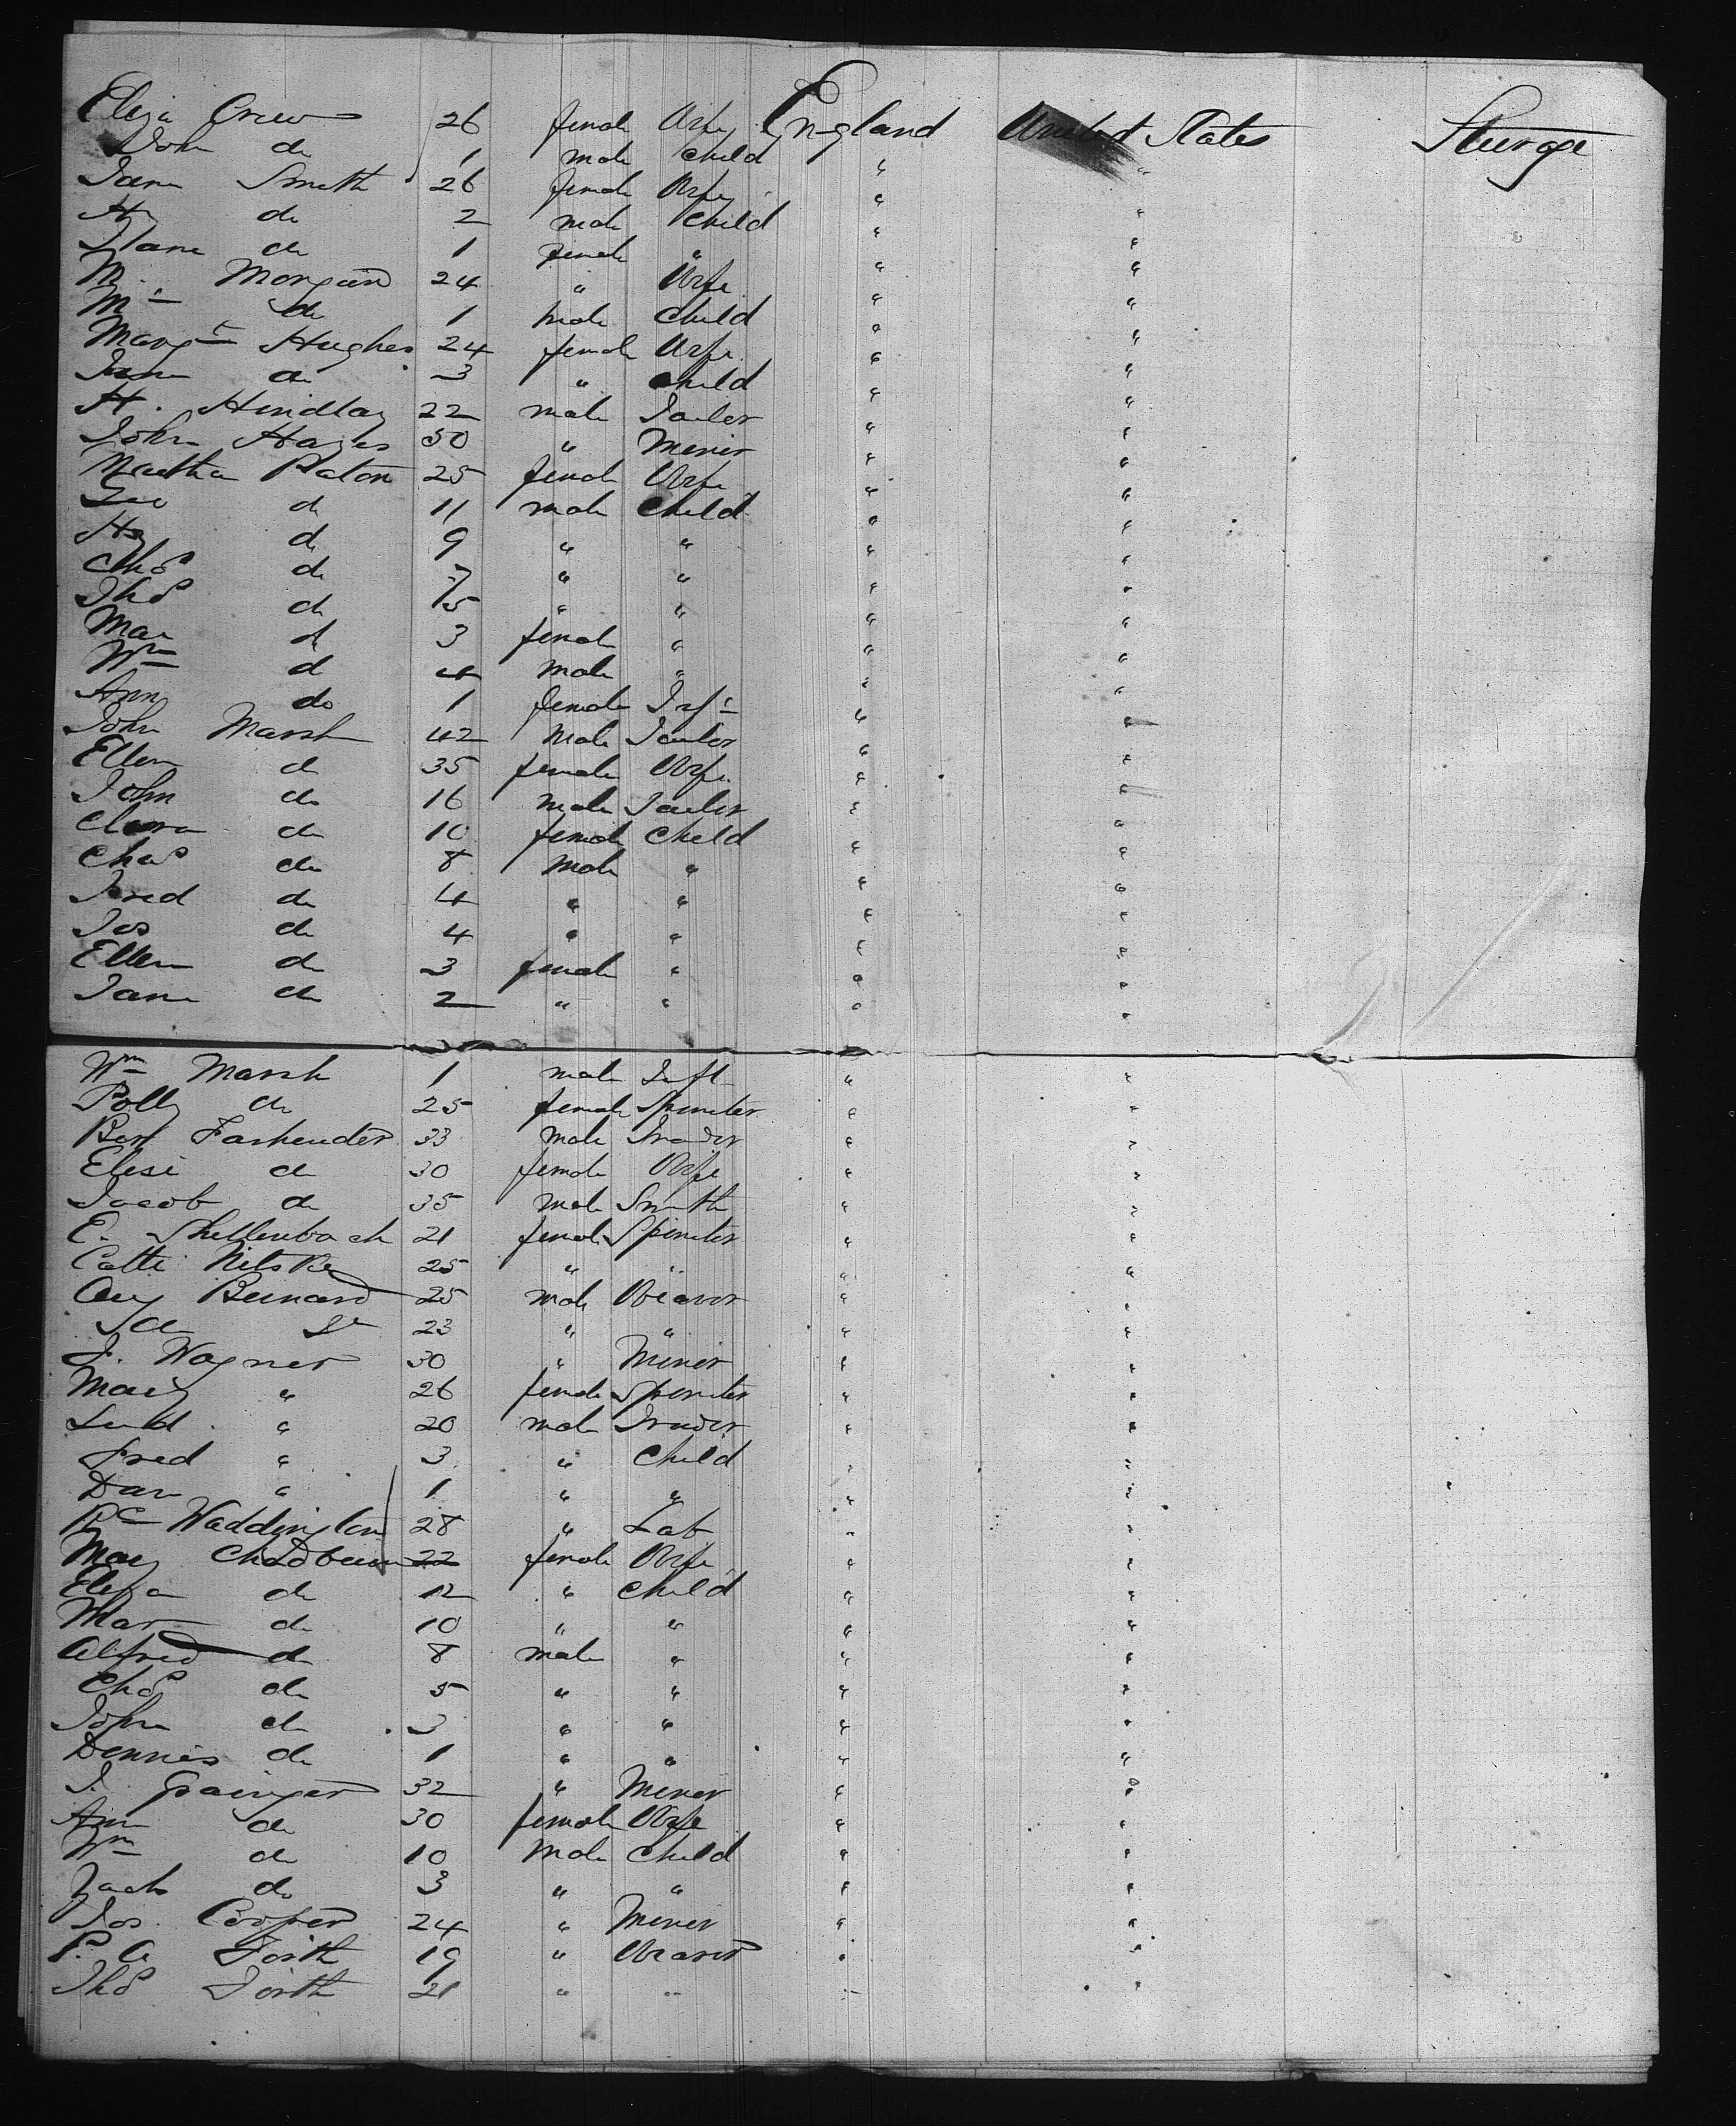 Eliza Crew 26 female Wife England United States Steerage
John do 1 male child " "
Jane Smith 26 female Wife " "
Hy do 2 male child " "
Jane do 1 female " " "
M. Morgan 24 " Wife " "
do 1 male child " "
Margt Hughes 24 female Wife " "
Jane do 3 " child " "
H. Hindlay 22 male Tailor " "
John Hayes 50 " Miner " "
Martha Paton 25 female Wife " "
Geo do 11 male child " "
Hy do 9 " " " "
Chs do 7 " " " "
Thos do 5 " " " "
Mar do 3 female " " "
Wm do 4 male " " "
Ann do 1 female Inft " "
John Marsh 42 male Tailor " "
Ellen do 35 female Wife " "
John do 16 male Tailor " "
Clara do 10 female child " "
Chas do 8 male " " "
Fred do 4 " " " "
Jos do 4 " " " "
Ellen do 3 female " " "
Jane do 2 " " " "
Wm Marsh 1 male Inft " "
Polly do 25 female Spinster " "
33 male Trader " "
Elise do 30 female Wife " "
Jacob do 35 male Smith " "
E. Shellenbach 21 female Spinster " "
Catti Nitske 25 " " " "
Aug Bernard 25 male Weaver " "
do 23 " " " "
J. Wagner 30 " Miner " "
Mary " 26 female Spinster " "
Lud " 20 male Trader " "
Fred " 3 " Child " "
Dan " 1 " " " "
Rd Waddington 28 " Lab " "
Mary Chadburn 22 female Wife " "
Eliza do 12 " child " "
Mar do 10 " " " "
Alfred do 8 male " " "
Chs do 5 " " " "
John do 3 " " " "
Dennis do 1 " " " "
J. Grainger 32 " Miner " "
Ann do 30 female Wife " "
Wm do 10 male child " "
Zach do 3 " " " "
Jos. Cooper 24 " Miner " "
P. A Forth 19 " Weaver " "
Thos Forth 21 " " " "